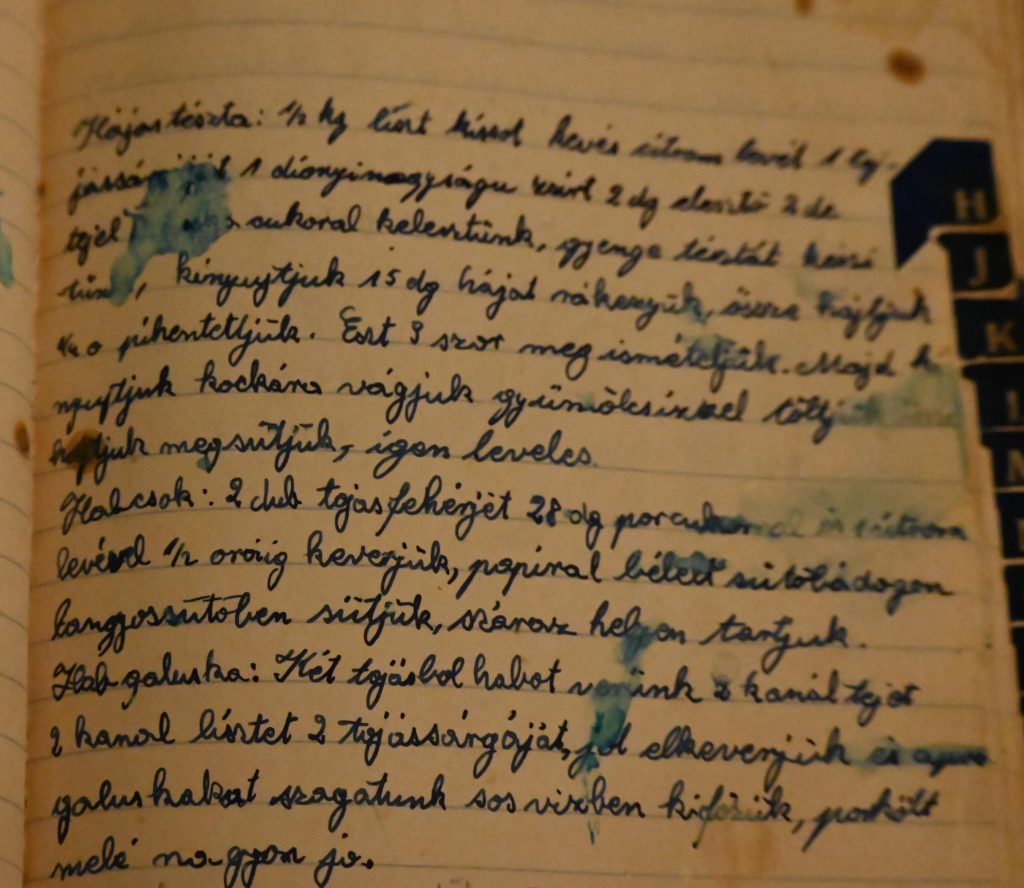 Hájas tészta: 1/2 kg lisrt kissol kevés citrom levél 1 toj-
jássár 1 dionyinagyságu zsirt 2 dg elesztö 2 dc
tejel cukoral kelesztünk, gyenge tésztát keszi
tünk, kinyujtjuk 15 dg hájat rákenjük, össze hajtjuk
1/4 o pihentetljük. Ezt 3 szor meg ismételjük. Majd k
nyujtjuk kockára vágjuk gyümölcsizzel töltj
hajtjuk megsütjük, igen leveles.
Habcsok: 2 dub tojásfehérjét 28 dg porcukor és citrom
levével 1/2 oráig keverjük, papiral bélelt sütöbádogon
langyossutoben sütjük, száraz helyen tartjuk.
Hab galuska: Két tojásbol habot verünk 2 kanál tejet
2 kanal lisztet 2 tojássárgáját, jol elkeverjük és apro
galuskakat szagatunk sos vizben kifözük, porkölt
melé nagyon jo.
H
J
K
L
M
N